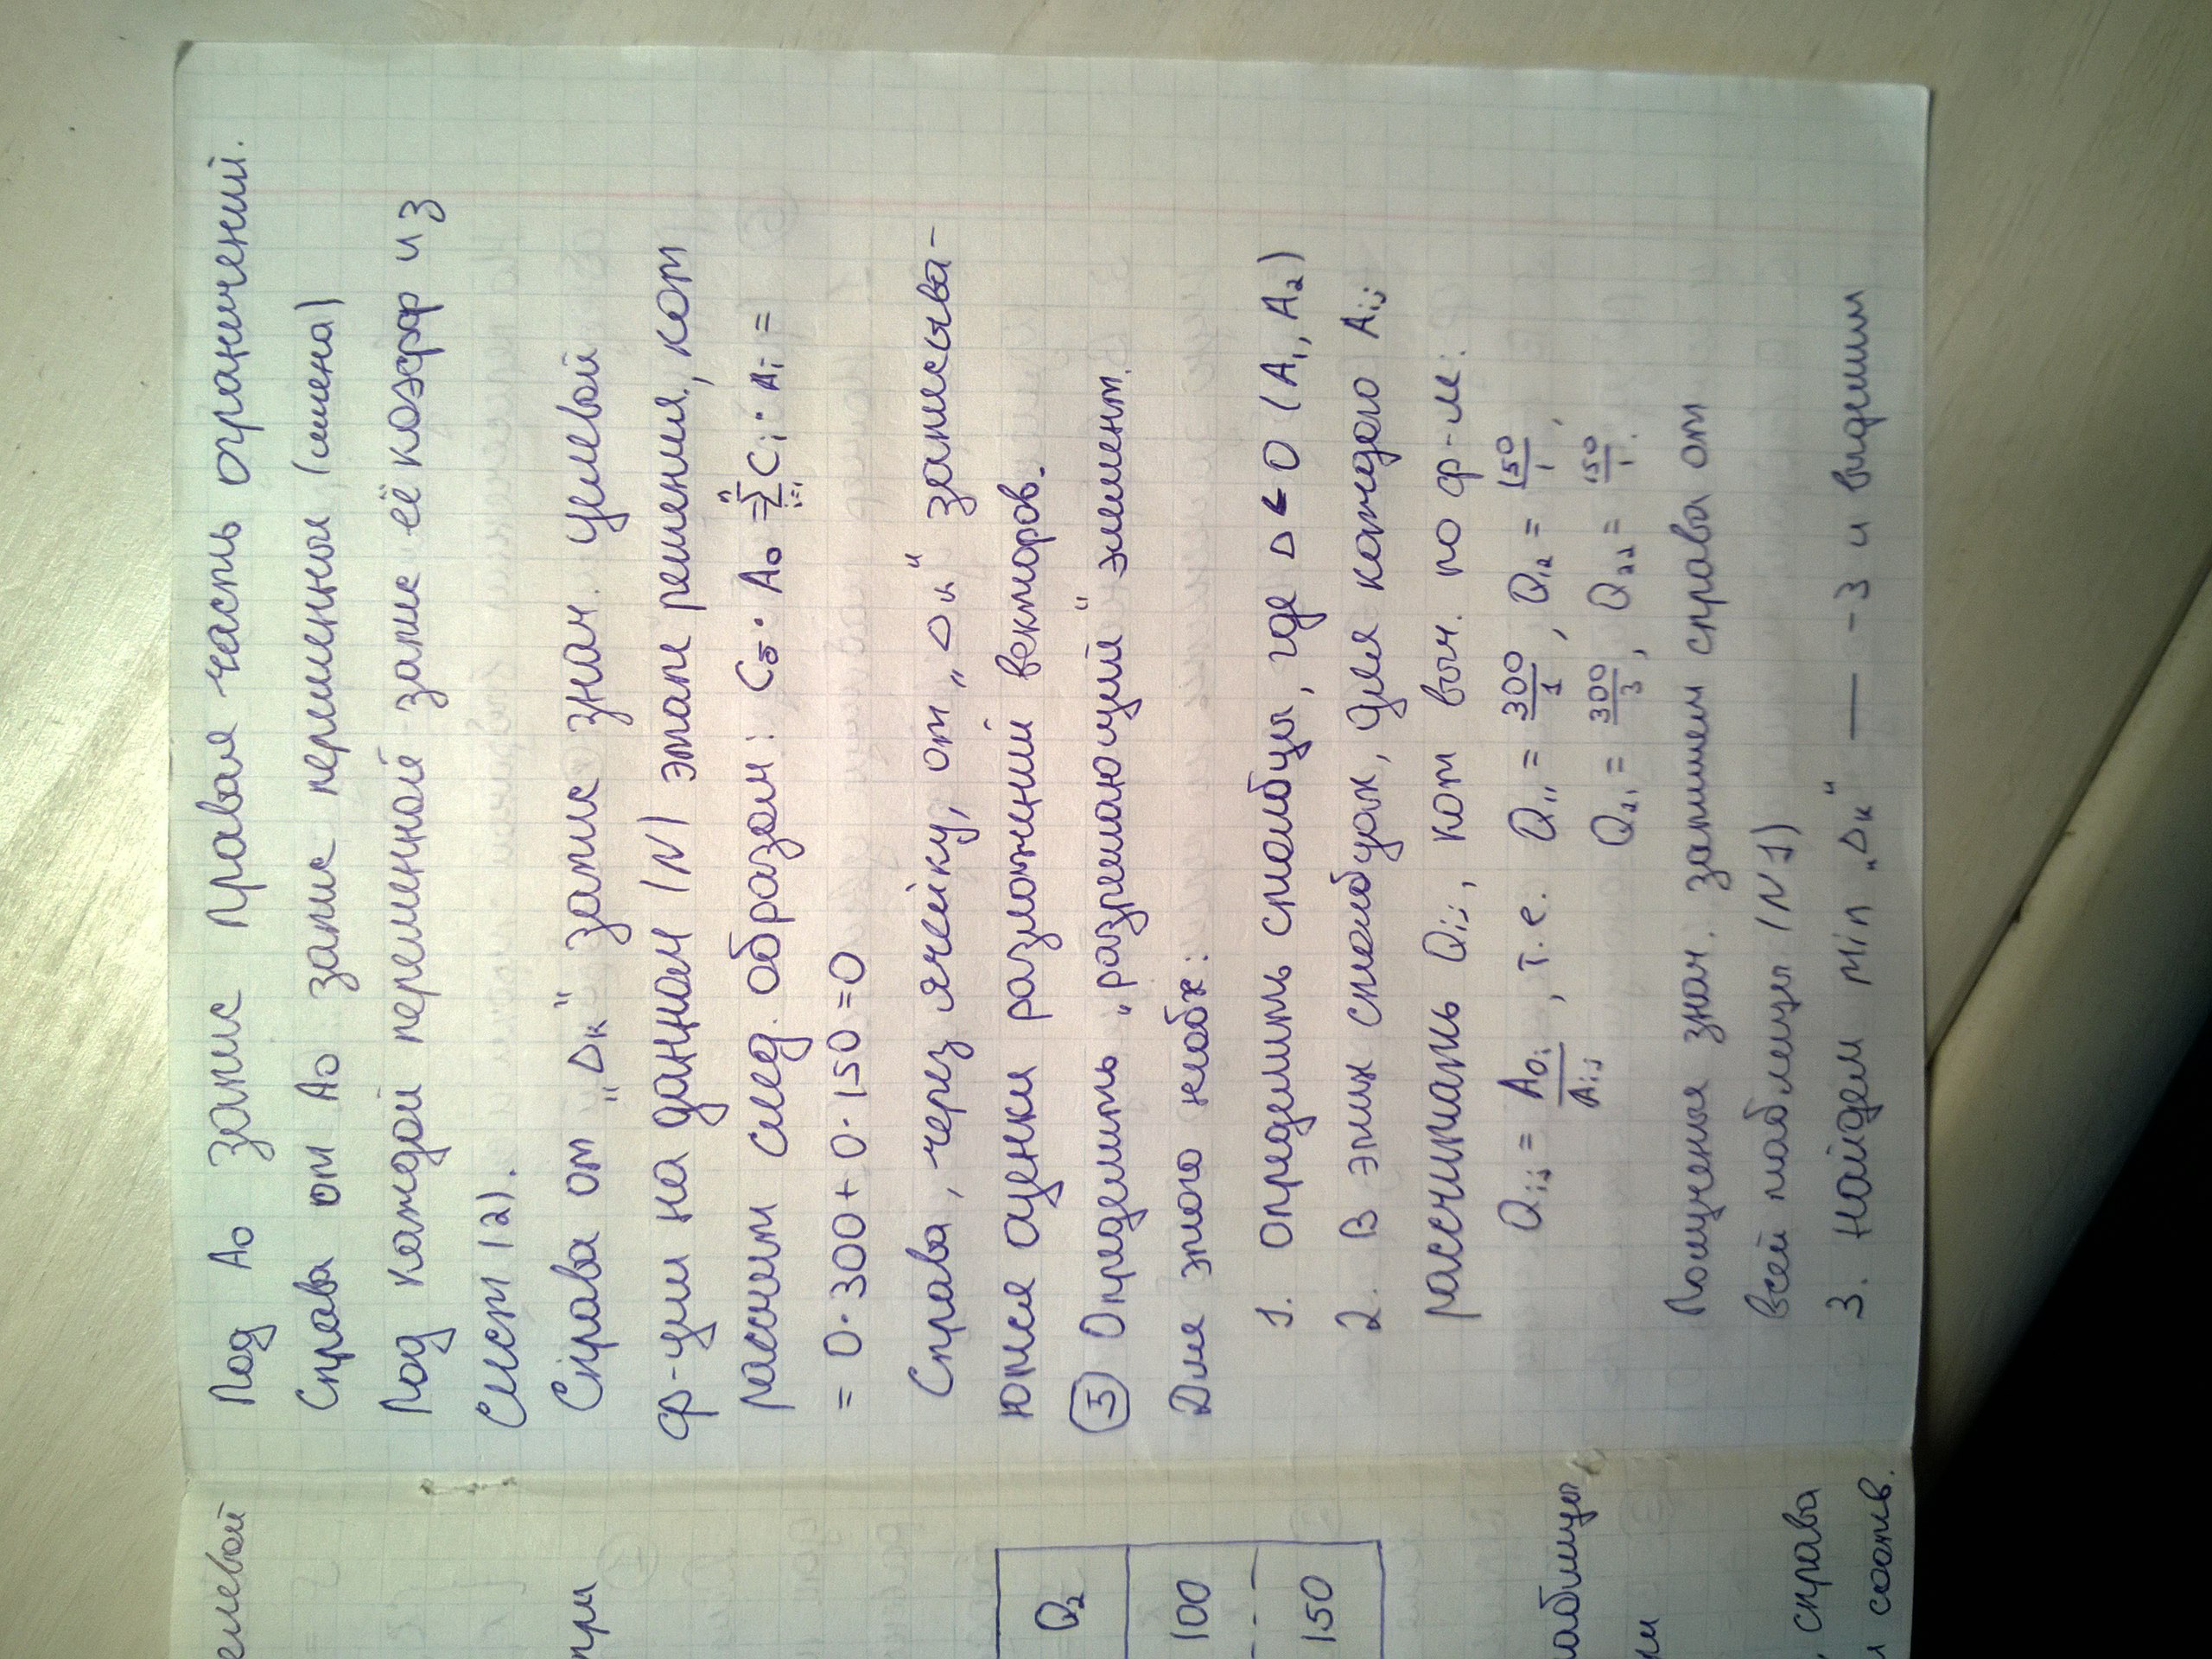 елевой
при
Q2
100
150
таблицы
ки
, справа
и соотв.
Под А0 запис правая часть ограничений.
Справа от А0 запис переменные (имена)
Под каждой переменной запис её коэфф из
сист (2).
Справа от „Δк“ запис знач. целевой
ф-ции на данном (N) этапе решения, кот
рассчит след. образом: Сб · А0 = n Σ i=1 Ci · Ai =
= 0·300 + 0·150 = 0
Справа, через ячейку, от „Δк“ записыва-
ются оценки разложений векторов.
5 Определить „разрешающий“ элемент.
Для этого необх:
1. определить столбцы, где Δ < 0 (А1, А2)
2. В этих столбцах, для каждого Аij
рассчитать Qij, кот выч. по ф-ле:
Qij = A0i / Aij, т.е. Q11 = 300/1, Q12 = 150/1,
Q21 = 300/3, Q22 = 150/1.
Полученые знач. запишем справа от
всей таблицы (N1)
3. Найдем min „Δк“ — -3 и выделим